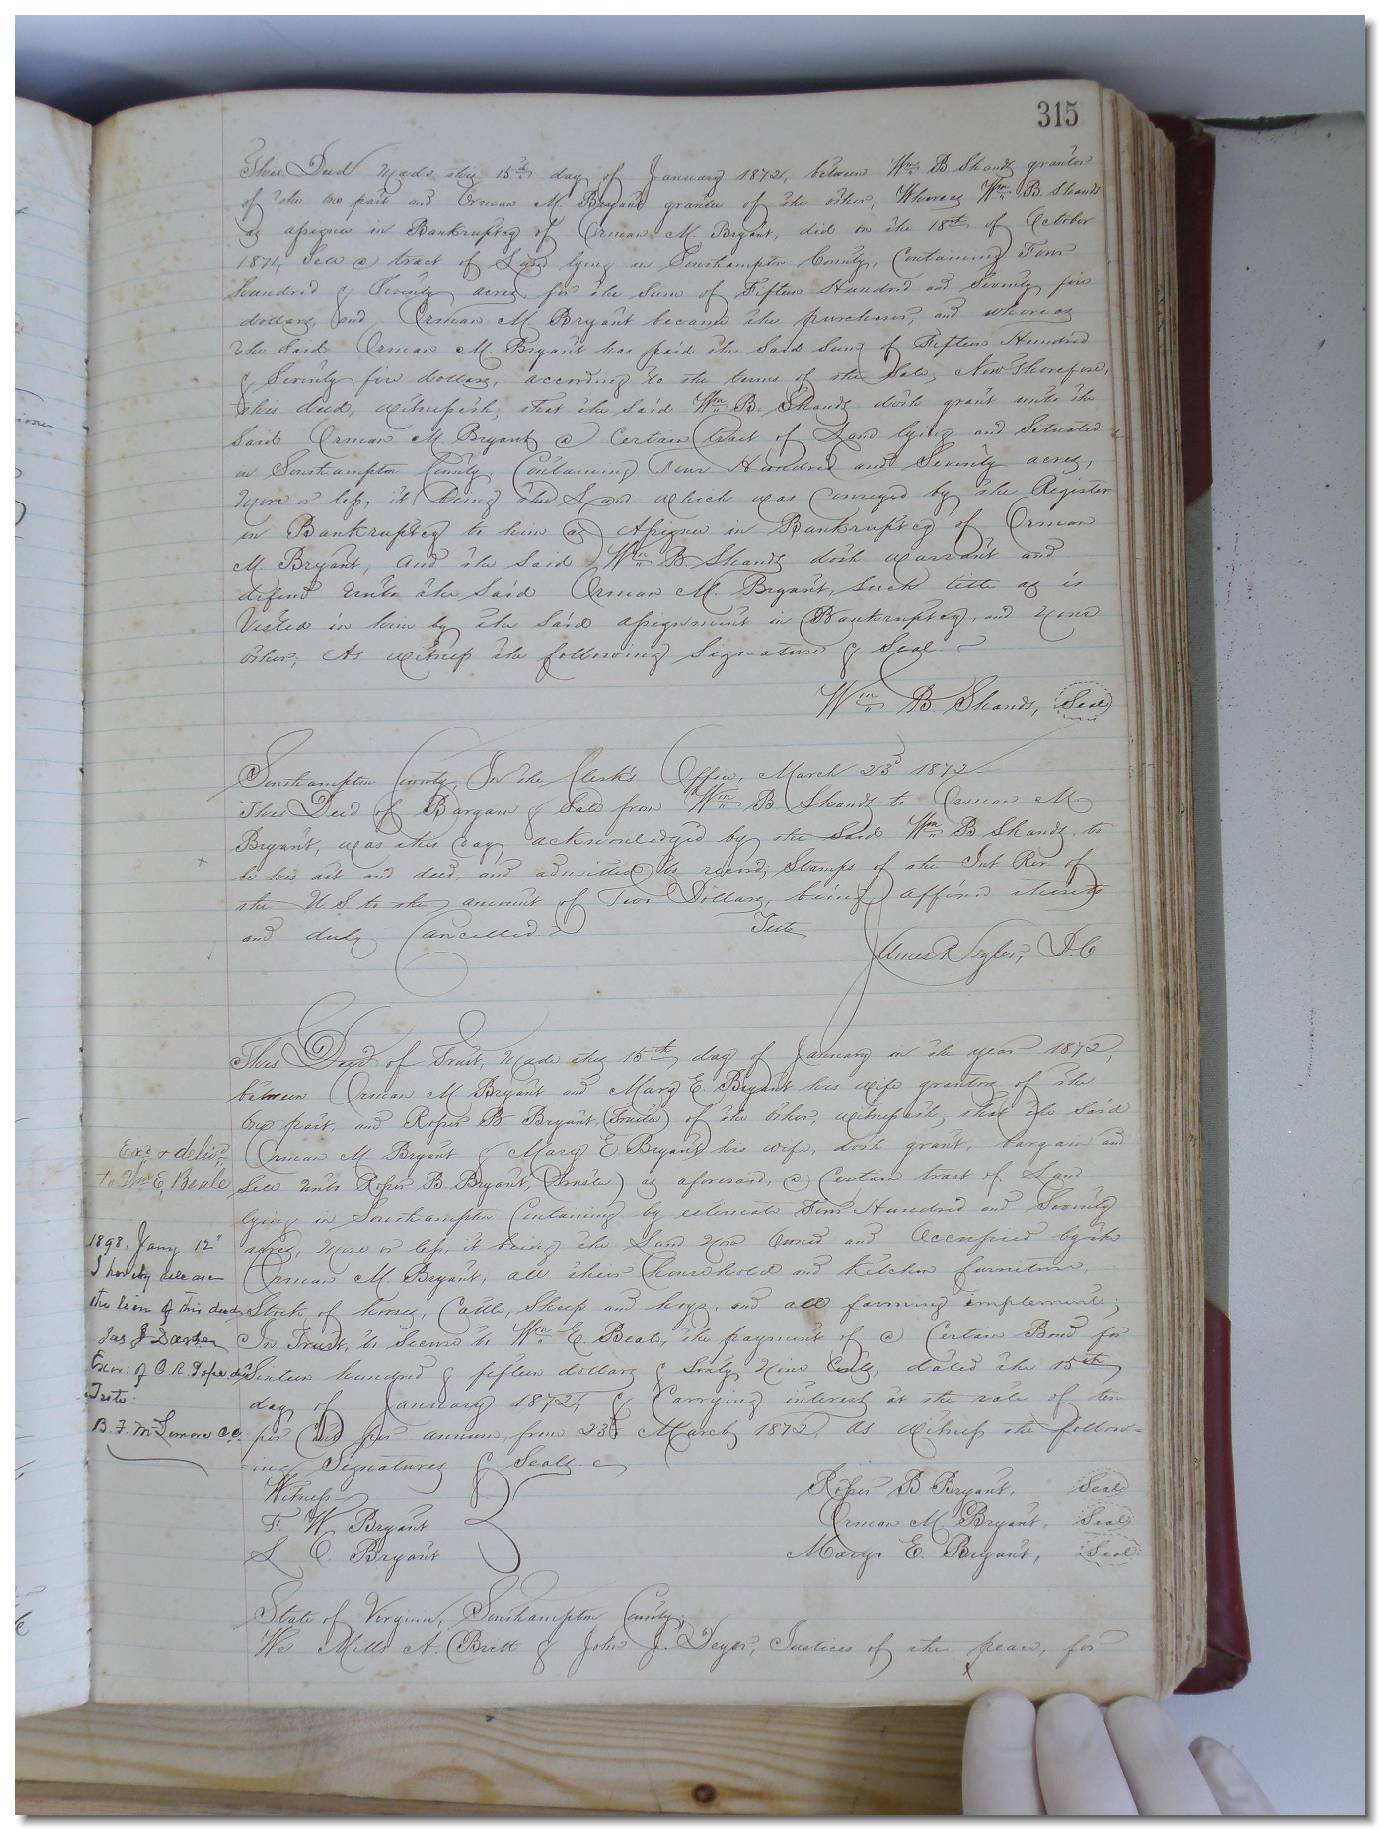 315
This Deed made this 15th day of January 1872, between Wm B Shands grantor
of the one part and Orman M. Bryant grantee of the other, Whereas Wm B. Shands
as assignee in Bankruptcy of Orman M. Bryant, did on the 18th of October
1871, Sell a tract of Land lying in Southampton County, Containing Four
hundred & Seventy acres for the Sum of Fifteen Hundred and Seventy five
dollars, and Orman M Bryant became the purchaser, and whereas
the Said Orman M. Bryant has paid the Said Sum of Fifteen Hundred
& Seventy five dollars, according to the terms of the Sale, Now Therefore,
this deed, witnesseth, that the Said Wm B. Shands doth grant unto the
Said Orman M Bryant a Certain tract of Land lying and Situated
in Southampton County, Containing Four Hundred and Seventy acres,
More or less, it being the Land which was Conveyed by the Register
in Bankruptcy to him as Assignee in Bankruptcy of Orman
M. Bryant, And the Said Wm B. Shands doth warrant and
defend Unto the Said Orman M. Bryant, Such title as is
Vested in him by the Said assignment in Bankruptcy, and None
other, As Witness the following Signature & Seal
Wm B. Shands, Seal
Southampton County, In the Clerk's Office, March 23d 1872
This Deed of Bargain & Sale from Wm B. Shands to Orman M
Bryant, was this day acknowledged by the Said Wm B Shands to
be his act and deed, and admitted to record, Stamps of the Int Rev of
the U.S. to the amount of Two Dollars, being affixed thereto
and duly Cancelled.
Teste
James R Tyler, D.C
This Deed of Trust, Made this 15th day of January in the year 1872,
between Orman M. Bryant and Mary E. Bryant his wife grantors of the
One part, and Roper B Bryant (Trustee) of the Other, witnesseth, that the Said
Orman M Bryant & Mary E Bryant his wife, doth grant, bargain and
Sell Unto Roper B. Bryant, (Trustee) as aforesaid, a Certain tract of Land
lying in Southampton Containing by estimate Four Hundred and Seventy
acres, More or less, it being the Land Now Owned and Occupied by the
Orman M Bryant, all their Household and Kitchen furniture,
Stock of horses, Cattle, Sheep and hogs, and all farming implements,
In Trust, to Secure to Wm E. Beale, the payment of a Certain Bond for
Sixteen hundred & fifteen dollars & Sixty Nine Cents, dated the 15th
day of January 1872, & Carrying interest at the rate of ten
per Cent per annum, from 23d March 1872, As Witness the follow=
ing Signatures & Seals.
Witness
F. W Bryant
S C. Bryant
Roper B. Bryant, Seal
Orman M Bryant, Seal
Mary E. Bryant, Seal
State of Virginia, Southampton County,
We Mills A. Britt & John J. Deyer, Justices of the peace, for
Exd & delivd
to Wm E, Beale
1898. Jany 12"
I hereby release
the lien of this deed
Jas J Darden
Exor. of
Teste:
B. F. McLemore CC.